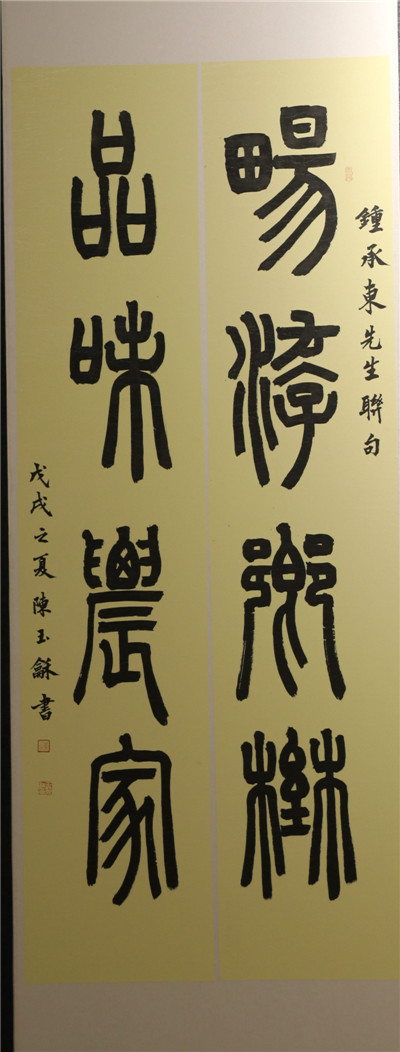 鍾承東先生聯句
畼游鄉埜
品味農家
戊戌之夏陳玉龢書